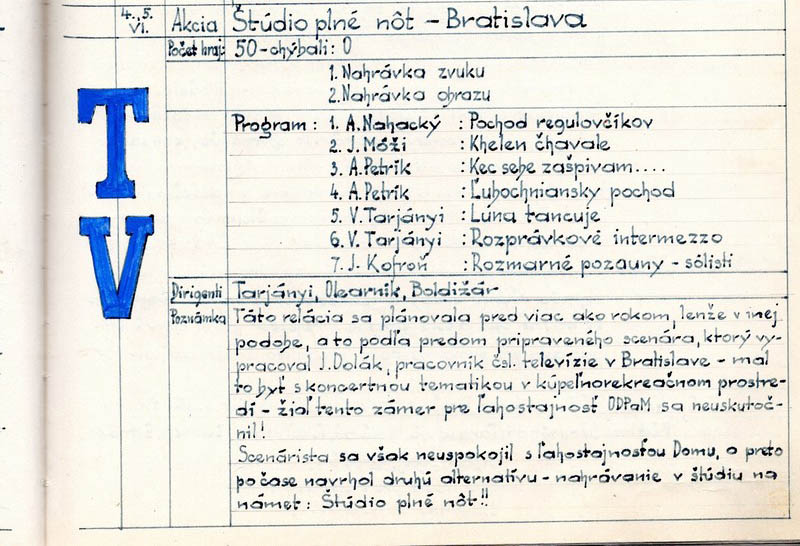 4.,5. VI. Akcia Štúdio plné nôt - Bratislava
Počet hraj: 50 - chýbali: 0
1. Nahrávka zvuku
2. Nahrávka obrazu
Program: 1. A. Nahacký : Pochod regulovčíkov
2. J. Móži : Khelen čhavale
3. A. Petrík : Kec sebe zašpivam....
4. A. Petrík : Ľubochniansky pochod
5. V. Tarjányi : Lúna tancuje
6. V. Tarjányi : Rozprávkové intermezzo
7. J. Kofroň : Rozmarné pozauny - sólisti
Dirigenti Tarjányi, Olearník, Boldižár
Poznámka Táto relácia sa plánovala pred viac ako rokom, lenže v inej
podobe, a to podľa predom pripraveného scenára, ktorý vy-
pracoval J. Dolák, pracovník čsl. televízie v Bratislave - mal
to byť s koncertnou tematikou v kúpeľnorekreačnom prostre-
dí - žiaľ tento zámer pre ľahostajnosť ODPaM sa neuskutoč-
nil!
Scenárista sa však neuspokojil s ľahostajnosťou Domu, a preto
po čase navrhol druhú alternatívu - nahrávanie v štúdiu na
námet: Štúdio plné nôt!!
T
V